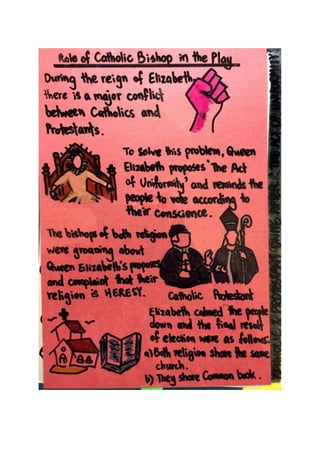 Role of Catholic Bishop in the Play
During the reign of Elizabeth,
there is a major conflict
between Catholics and
Protestants.
To solve this problem, Queen
Elizabeth proposes 'The Act
of Uniformity' and reminds the
people to vote according to
their conscience.
The bishops of both religion
were groaning about
Queen Elizabeth's proposes
and complaint that their
religion is HERESY.
Catholic Protestant
Elizabeth calmed the people
down and the final result
of election were as follows.
a) Both religion share the same
church.
b) They share Common book.